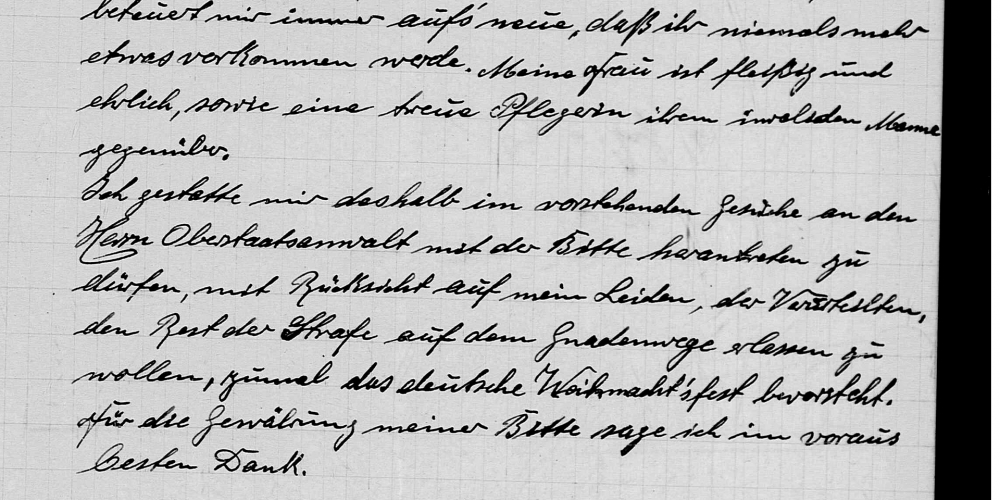 beteuert mir immer auf's neue, daß ihr niemals mehr
etwas vorkommen werde. Meine Frau ist fleißig und
ehrlich, sowie eine treue Pflegerin ihrem invaliden Manne
gegenüber.
Ich gestatte mir deshalb im vorstehenden Gesuche an den
Herrn Oberstaatsanwalt mit der Bitte herantreten zu
dürfen, mit Rücksicht auf mein Leiden, der Verurteilten,
den Rest der Strafe auf dem Gnadenwege erlassen zu
wollen, zumal das deutsche Weihnacht'sfest bevorsteht.
Für die Gewährung meiner Bitte sage ich im voraus
besten Dank.